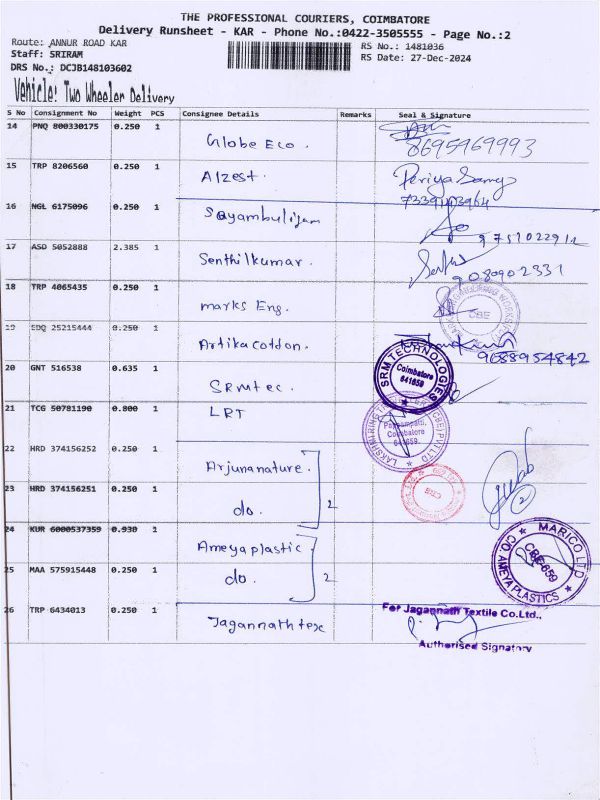 THE PROFESSIONAL COURIERS, COIMBATORE
Delivery Runsheet - KAR - Phone No.:0422-3505555 - Page No.:2
Route: ANNUR ROAD KAR
RS No.: 1481036
Staff: SRIRAM
RS Date: 27-Dec-2024
DRS No.: DCJB148103602
Vehicle: Two Wheeler Delivery
S No Consignment No Weight PCS Consignee Details Remarks Seal & Signature
14 PNQ 800330175 0.250 1
Globe Eco.
8695969993
15 TRP 8206560 0.250 1
Alzest.
Periyasamy
7339103964
16 NGL 6175096 0.250 1
Sayambulijam
9751022912
17 ASD 5052888 2.385 1
Senthilkumar.
9080902331
18 TRP 4065435 0.250 1
marks Eng.
ENGINEERING WORKS
CBE
19 EDQ 25215444 0.250 1
Artikacotton.
9688954842
20 GNT 516538 0.635 1
SRmtec.
SRM TECHNOLOGIES
Coimbatore
641659
21 TCG 50781190 0.800 1
LRT
LAKSHMI RING (CBE) PVT LTD
Coimbatore
641659.
22 HRD 374156252 0.250 1
Arjunanature.
23 HRD 374156251 0.250 1
do. 2
2
24 KUR 6000537359 0.930 1
Ameyaplastic
25 MAA 575915448 0.250 1
do. 2
MARICO LTD
CBE-659
C/O. AMEYA PLASTICS
26 TRP 6434013 0.250 1
Jagannath tex
For Jagannath Textile Co.Ltd.,
Authorised Signatory